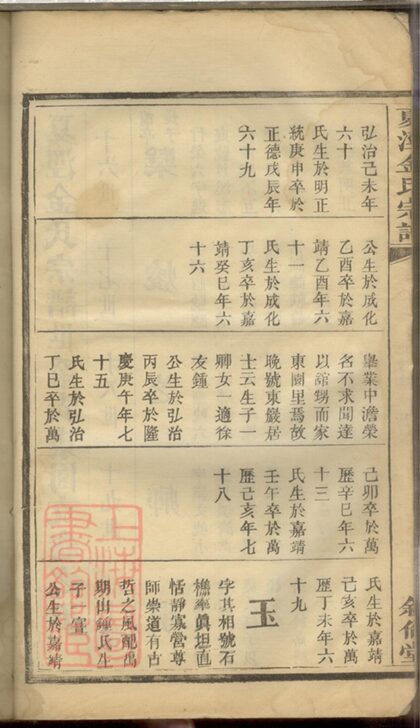 夏溪金氏宗譜
弘治己未年
六十
氏生於明正
統庚申卒於
正德戊辰年
六十九
公生於成化
乙酉卒於嘉
靖乙酉年六
十一
氏生於成化
丁亥卒於嘉
靖癸巳年六
十六
舉業中澹榮
名不求聞達
以館甥而家
東園里焉故
晚號東巖居
士云生子一
卿女一適徐
友鍾
公生於弘治
丙辰卒於隆
慶庚午年七
十五
氏生於弘治
丁巳卒於萬
己卯卒於萬
歷辛巳年六
十三
氏生於嘉靖
壬午卒於萬
歷己亥年七
十八
氏生於嘉靖
己亥卒於萬
歷丁未年六
十九
玉
字其相號石
樵率眞坦直
恬靜寡營尊
師崇道有古
哲之風配出
期山鍾氏生
子宣
公生於嘉靖